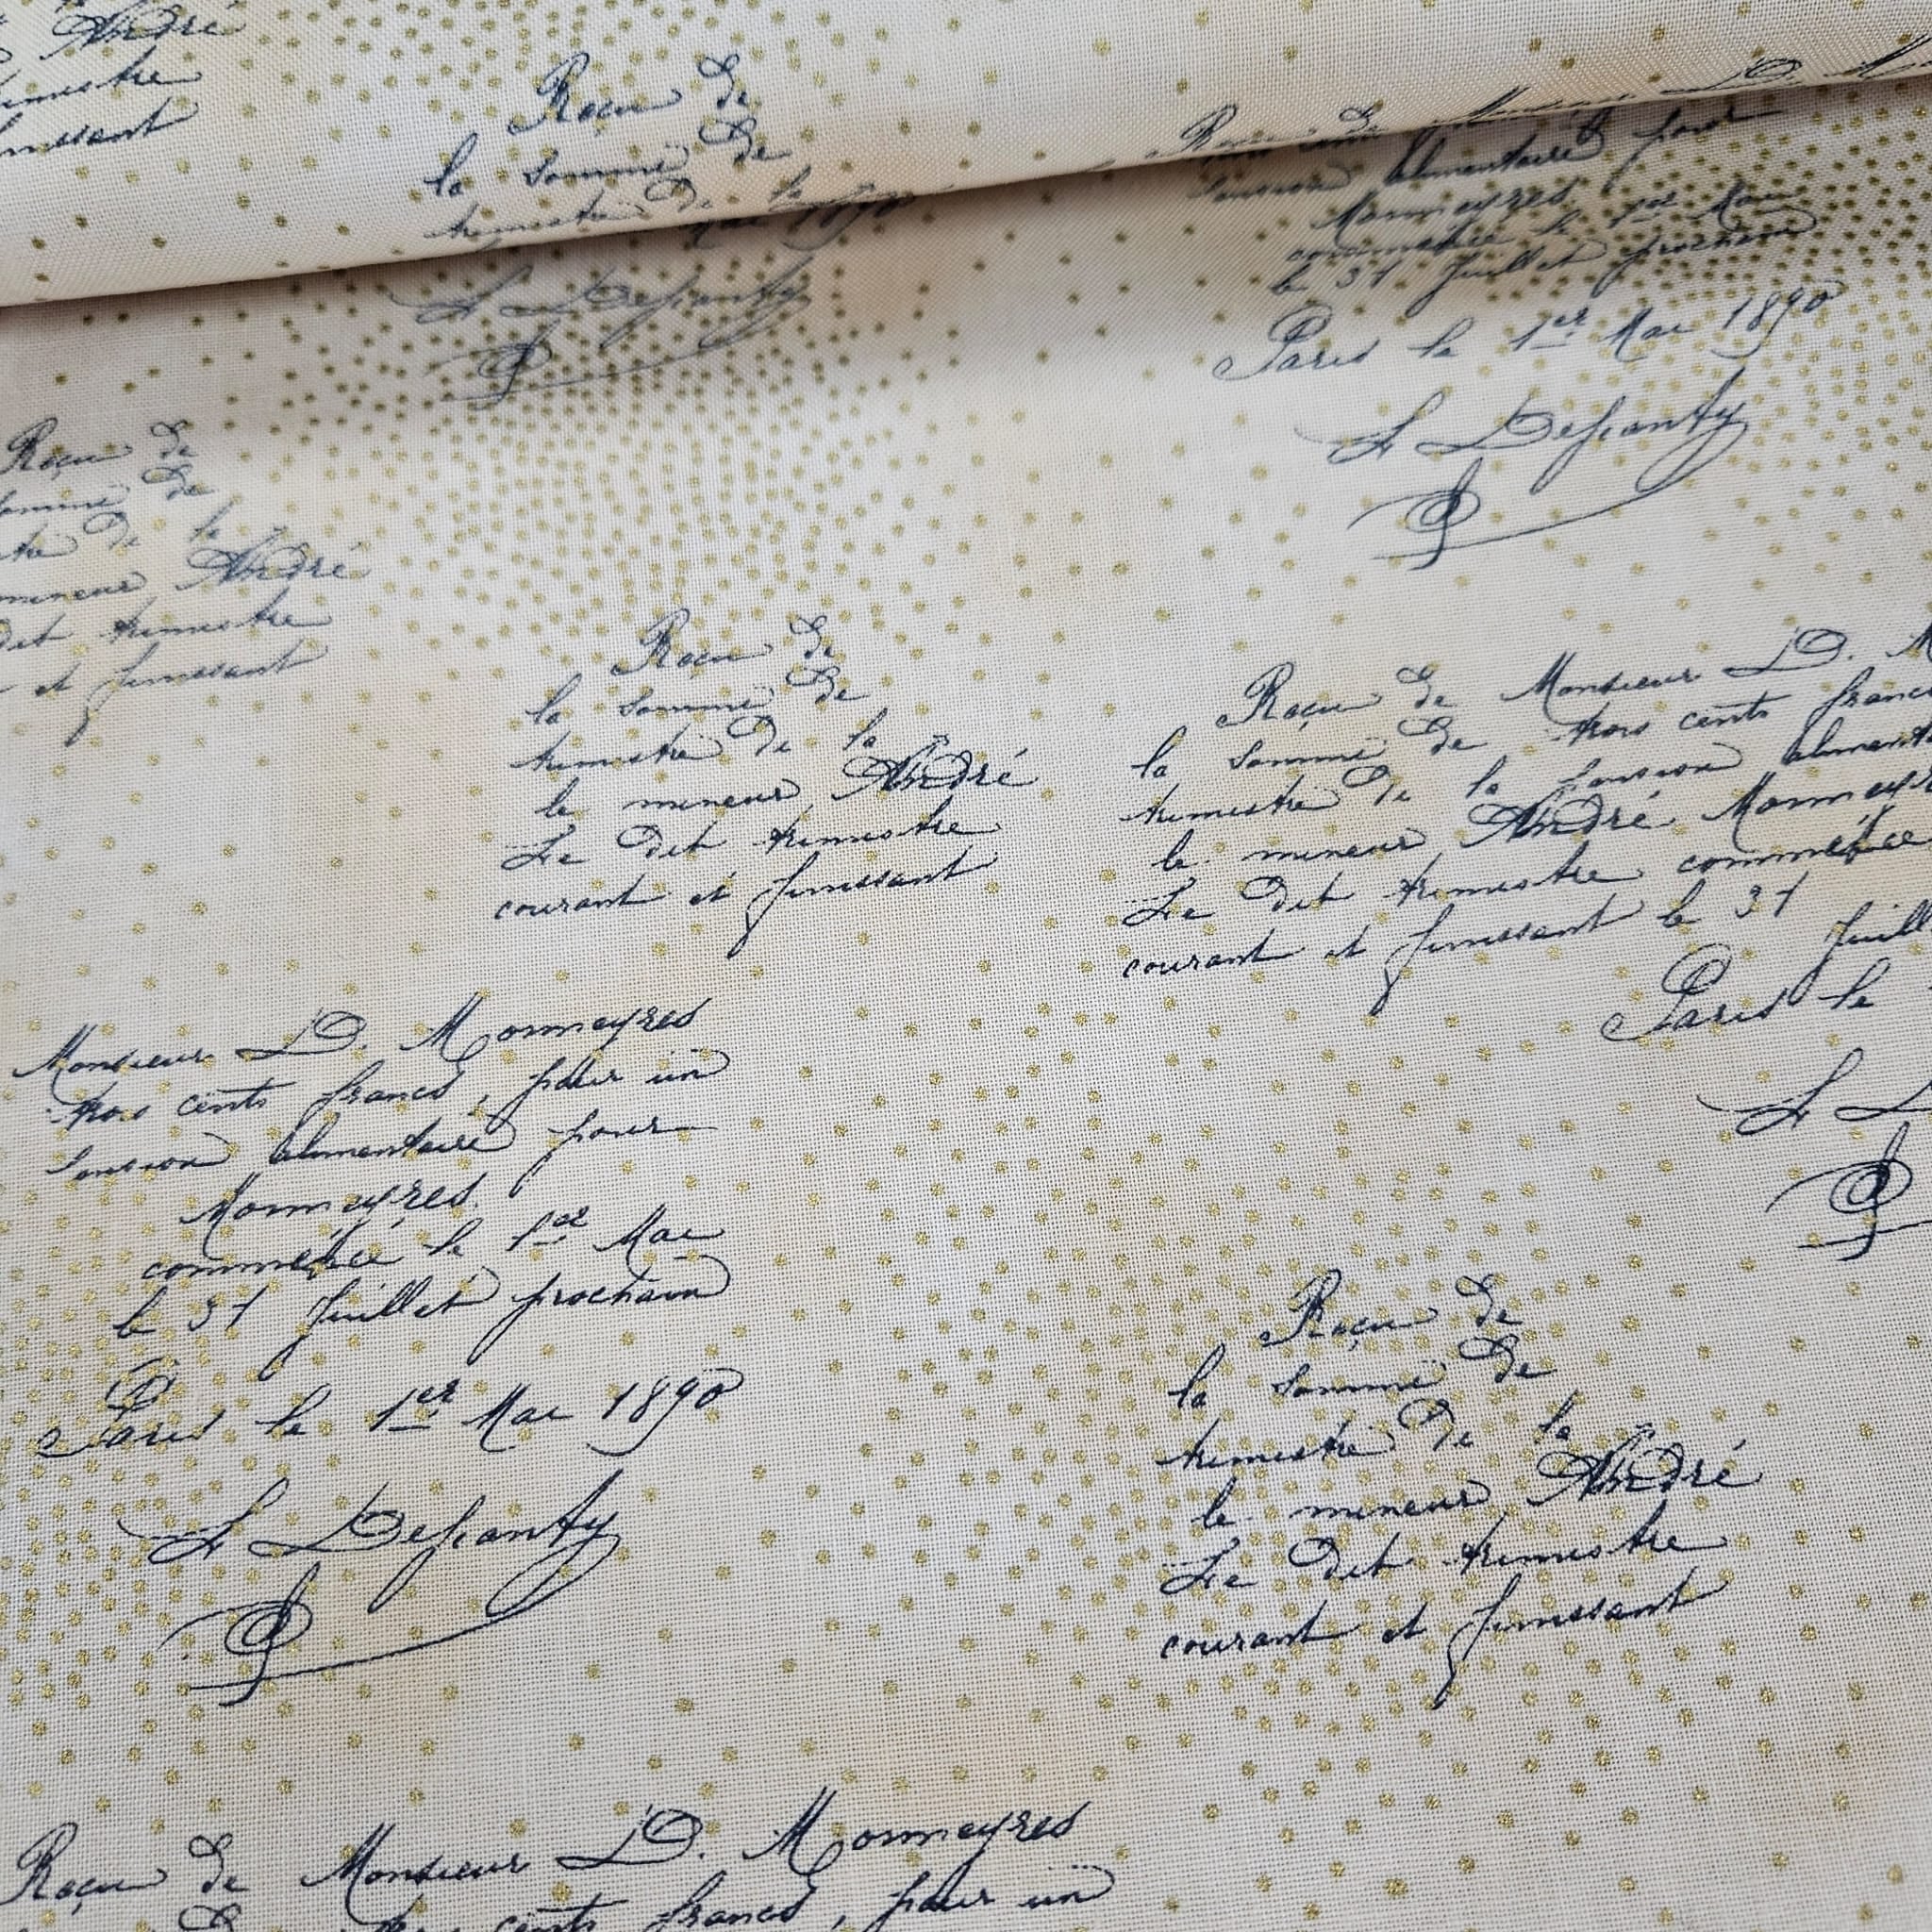 André
Reçu de
la somme de
trimestre de la
Mai 1890
L Depanty
Reçu de Monsieur D.
pension alimentaire pour
Monmeyres
commencé le 1er Mai
le 31 Juillet prochain
Paris le 1er Mai 1890
L Depanty
Reçu de
de
de la
mineur André
dit trimestre
et finissant
Reçu de
la somme de
trimestre de la
le mineur André
Le dit trimestre
courant et finissant
Reçu de Monsieur D. M
la somme de trois cents francs
trimestre de la pension
le mineur André
Le dit trimestre commencé
courant et finissant le 31
Paris le
L
Monsieur D. Monmeyres
trois cents francs, pour un
pension alimentaire pour
Monmeyres.
commencé le 1er Mai
le 31 Juillet prochain
Paris le 1er Mai 1890
L Depanty
Reçu de
la somme de
trimestre de la
le mineur André
Le dit trimestre
courant et finissant
Reçu de Monsieur D. Monmeyres
trois cents francs, pour un